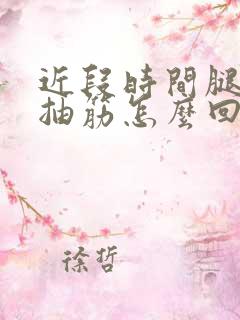 近段時間腿
抽筋怎麼回
徐哲